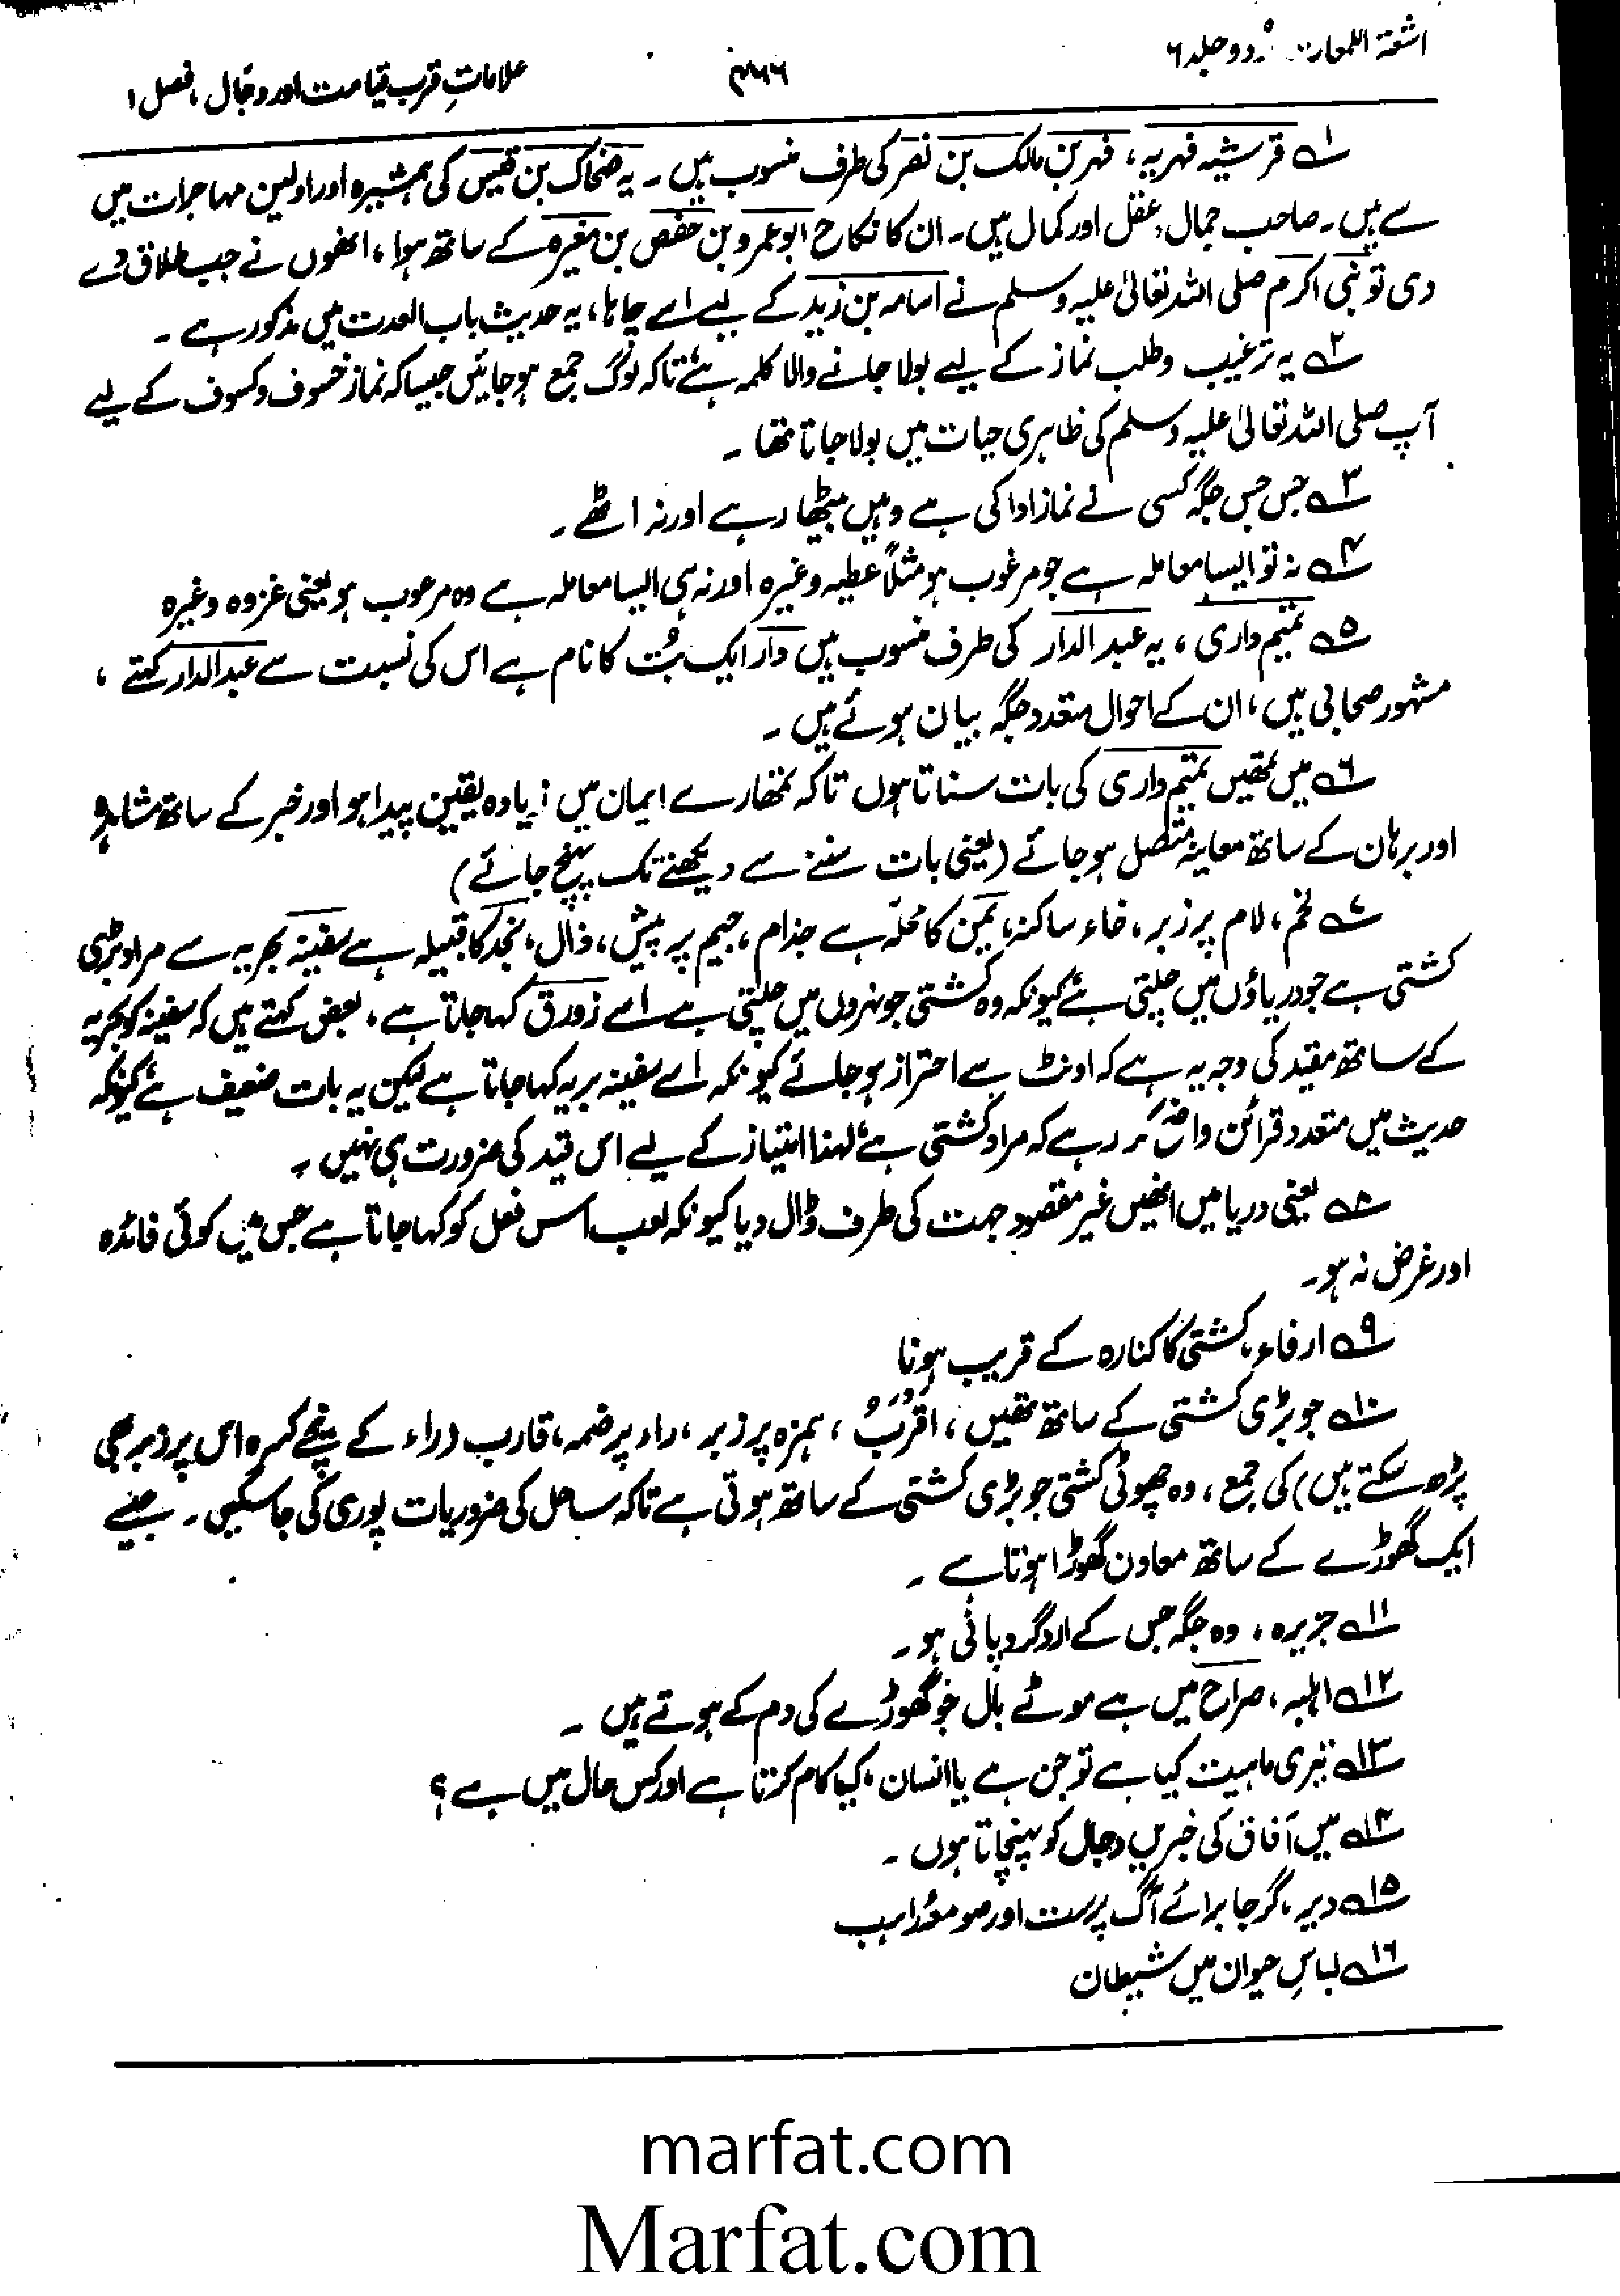 اشعۃ اللمعات اردو جلد ۶
۴۶۶
علاماتِ قرب قیامت اور دجّال ، فصل ۱
۱؎ قرشیہ فہریہ ، فہر بن مالک بن نصر کی طرف منسوب ہیں ۔ یہ ضحاک بن قیس کی ہمشیرہ اور اولین مہاجرات میں
سے ہیں ۔ صاحب جمال ، عقل اور کمال ہیں ۔ ان کا نکاح ابو عمرو بن حفص بن مغیرہ کے ساتھ ہوا ، انھوں نے جب طلاق دے
دی تو نبی اکرم صلی اللہ تعالیٰ علیہ وسلم نے اسامہ بن زید کے لیے اسے چاہا ، یہ حدیث باب العدت میں مذکور ہے ۔
۲؎ یہ ترغیب و طلب نماز کے لیے بولا جانے والا کلمہ ہے تاکہ لوگ جمع ہو جائیں جیسا کہ نماز خسوف و کسوف کے لیے
آپ صلی اللہ تعالیٰ علیہ وسلم کی ظاہری حیات میں بولا جاتا تھا ۔
۳؎ جس جس جگہ کسی نے نماز ادا کی ہے وہیں بیٹھا رہے اور نہ اٹھے ۔
۴؎ نہ تو ایسا معاملہ ہے جو مرغوب ہو مثلاً عطیہ وغیرہ اور نہ ہی ایسا معاملہ ہے وہ مرعوب ہو یعنی غزوہ وغیرہ
۵؎ تمیم داری ، یہ عبد الدار کی طرف منسوب ہیں دار ایک بُت کا نام ہے اس کی نسبت سے عبد الدار کہتے ،
مشہور صحابی ہیں ، ان کے احوال متعدد جگہ بیان ہوئے ہیں ۔
۶؎ میں تمھیں تمیم داری کی بات سناتا ہوں تاکہ تمھارے ایمان میں زیادہ یقین پیدا ہو اور خبر کے ساتھ مشاہدہ
اور برہان کے ساتھ معاینہ متصل ہو جائے (یعنی بات سننے سے دیکھنے تک پہنچ جائے)
۷؎ لخم ، لام پر زبر ، خاء ساکنہ ، یمن کا محلّہ ہے جذام ، جیم پر پیش ، ذال ، نجد کا قبیلہ ہے سفینہ بحریہ سے مراد بڑی
کشتی ہے جو دریاؤں میں چلتی ہے کیونکہ وہ کشتی جو نہروں میں چلتی ہے اسے زورق کہا جاتا ہے ، بعض کہتے ہیں کہ سفینہ کو بحریہ
کے ساتھ مقید کی وجہ یہ ہے کہ اونٹ سے احتراز ہو جائے کیونکہ اسے سفینہ بریہ کہا جاتا ہے لیکن یہ بات ضعیف ہے کیونکہ
حدیث میں متعدد قرائن واضح کر رہے کہ مراد کشتی ہے لہذا امتیاز کے لیے اس قید کی ضرورت ہی نہیں ۔
۸؎ یعنی دریا میں انھیں غیر مقصود جہت کی طرف ڈال دیا کیونکہ لعب اس فعل کو کہا جاتا ہے جس میں کوئی فائدہ
اور غرض نہ ہو۔
۹؎ ارفاء ، کشتی کا کنارہ کے قریب ہونا
۱۰؎ جو بڑی کشتی کے ساتھ تھیں ، اقرُبُ ، ہمزہ پر زبر ، راء پر ضمہ ، قارب (راء کے نیچے کسرہ اس پر زبر بھی
پڑھ سکتے ہیں) کی جمع ، وہ چھوٹی کشتی جو بڑی کشتی کے ساتھ ہوتی ہے تاکہ ساحل کی ضروریات پوری کی جا سکیں ۔ جیسے
ایک گھوڑے کے ساتھ معاون گھوڑا ہوتا ہے ۔
۱۱؎ جزیرہ ، وہ جگہ جس کے ارد گرد پانی ہو ۔
۱۲؎ اہلبہ ، صراح میں ہے موٹے بال جو گھوڑے کی دم کے ہوتے ہیں ۔
۱۳؎ تیری ماہیت کیا ہے تو جن ہے یا انسان ، کیا کام کرتا ہے اور کس حال میں ہے ؟
۱۴؎ میں آفاق کی خبریں دجال کو پہنچاتا ہوں ۔
۱۵؎ دیر ، گرجا برائے آگ پرست اور صومعۂ راہب
۱۶؎ لباسِ حیوان میں شیطان
marfat.com
Marfat.com